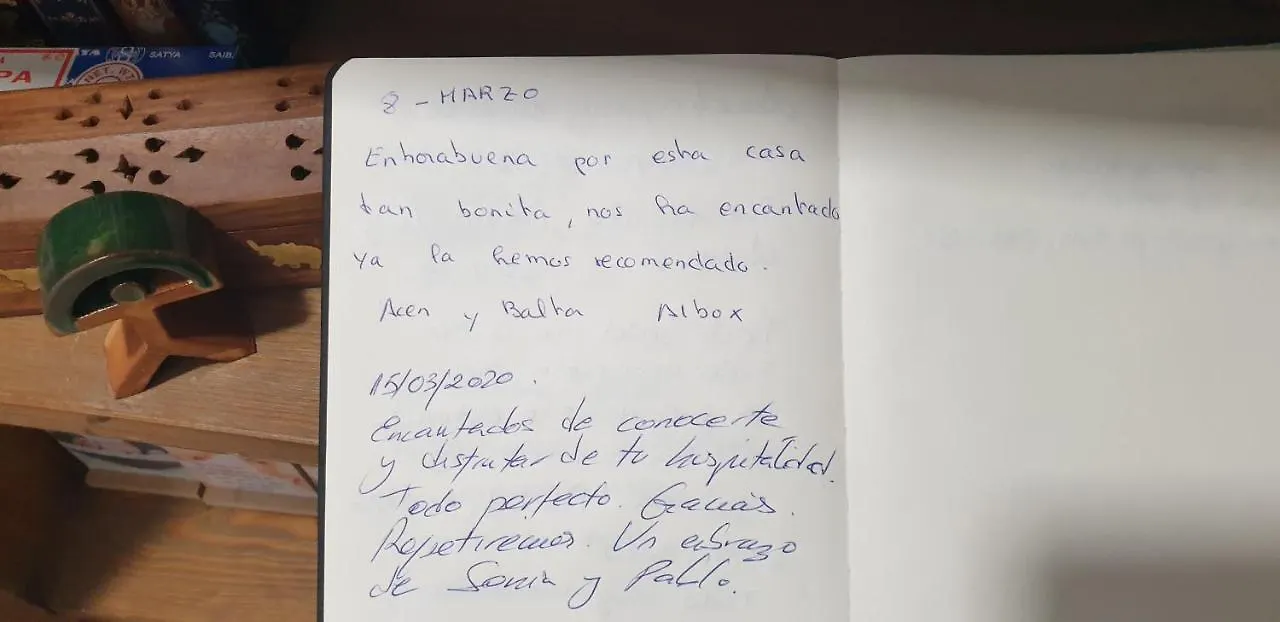 PA
SATYA SAIB
8 - MARZO
Enhorabuena por esta casa
tan bonita, nos ha encantado
ya la hemos recomendado.
y Balta Albox
15/03/2020.
Encantados de conocerte
y disfrutar de tu hospitalidad.
Todo perfecto. Gracias.
Repetiremos. Un abrazo
de Sonia y Pablo.